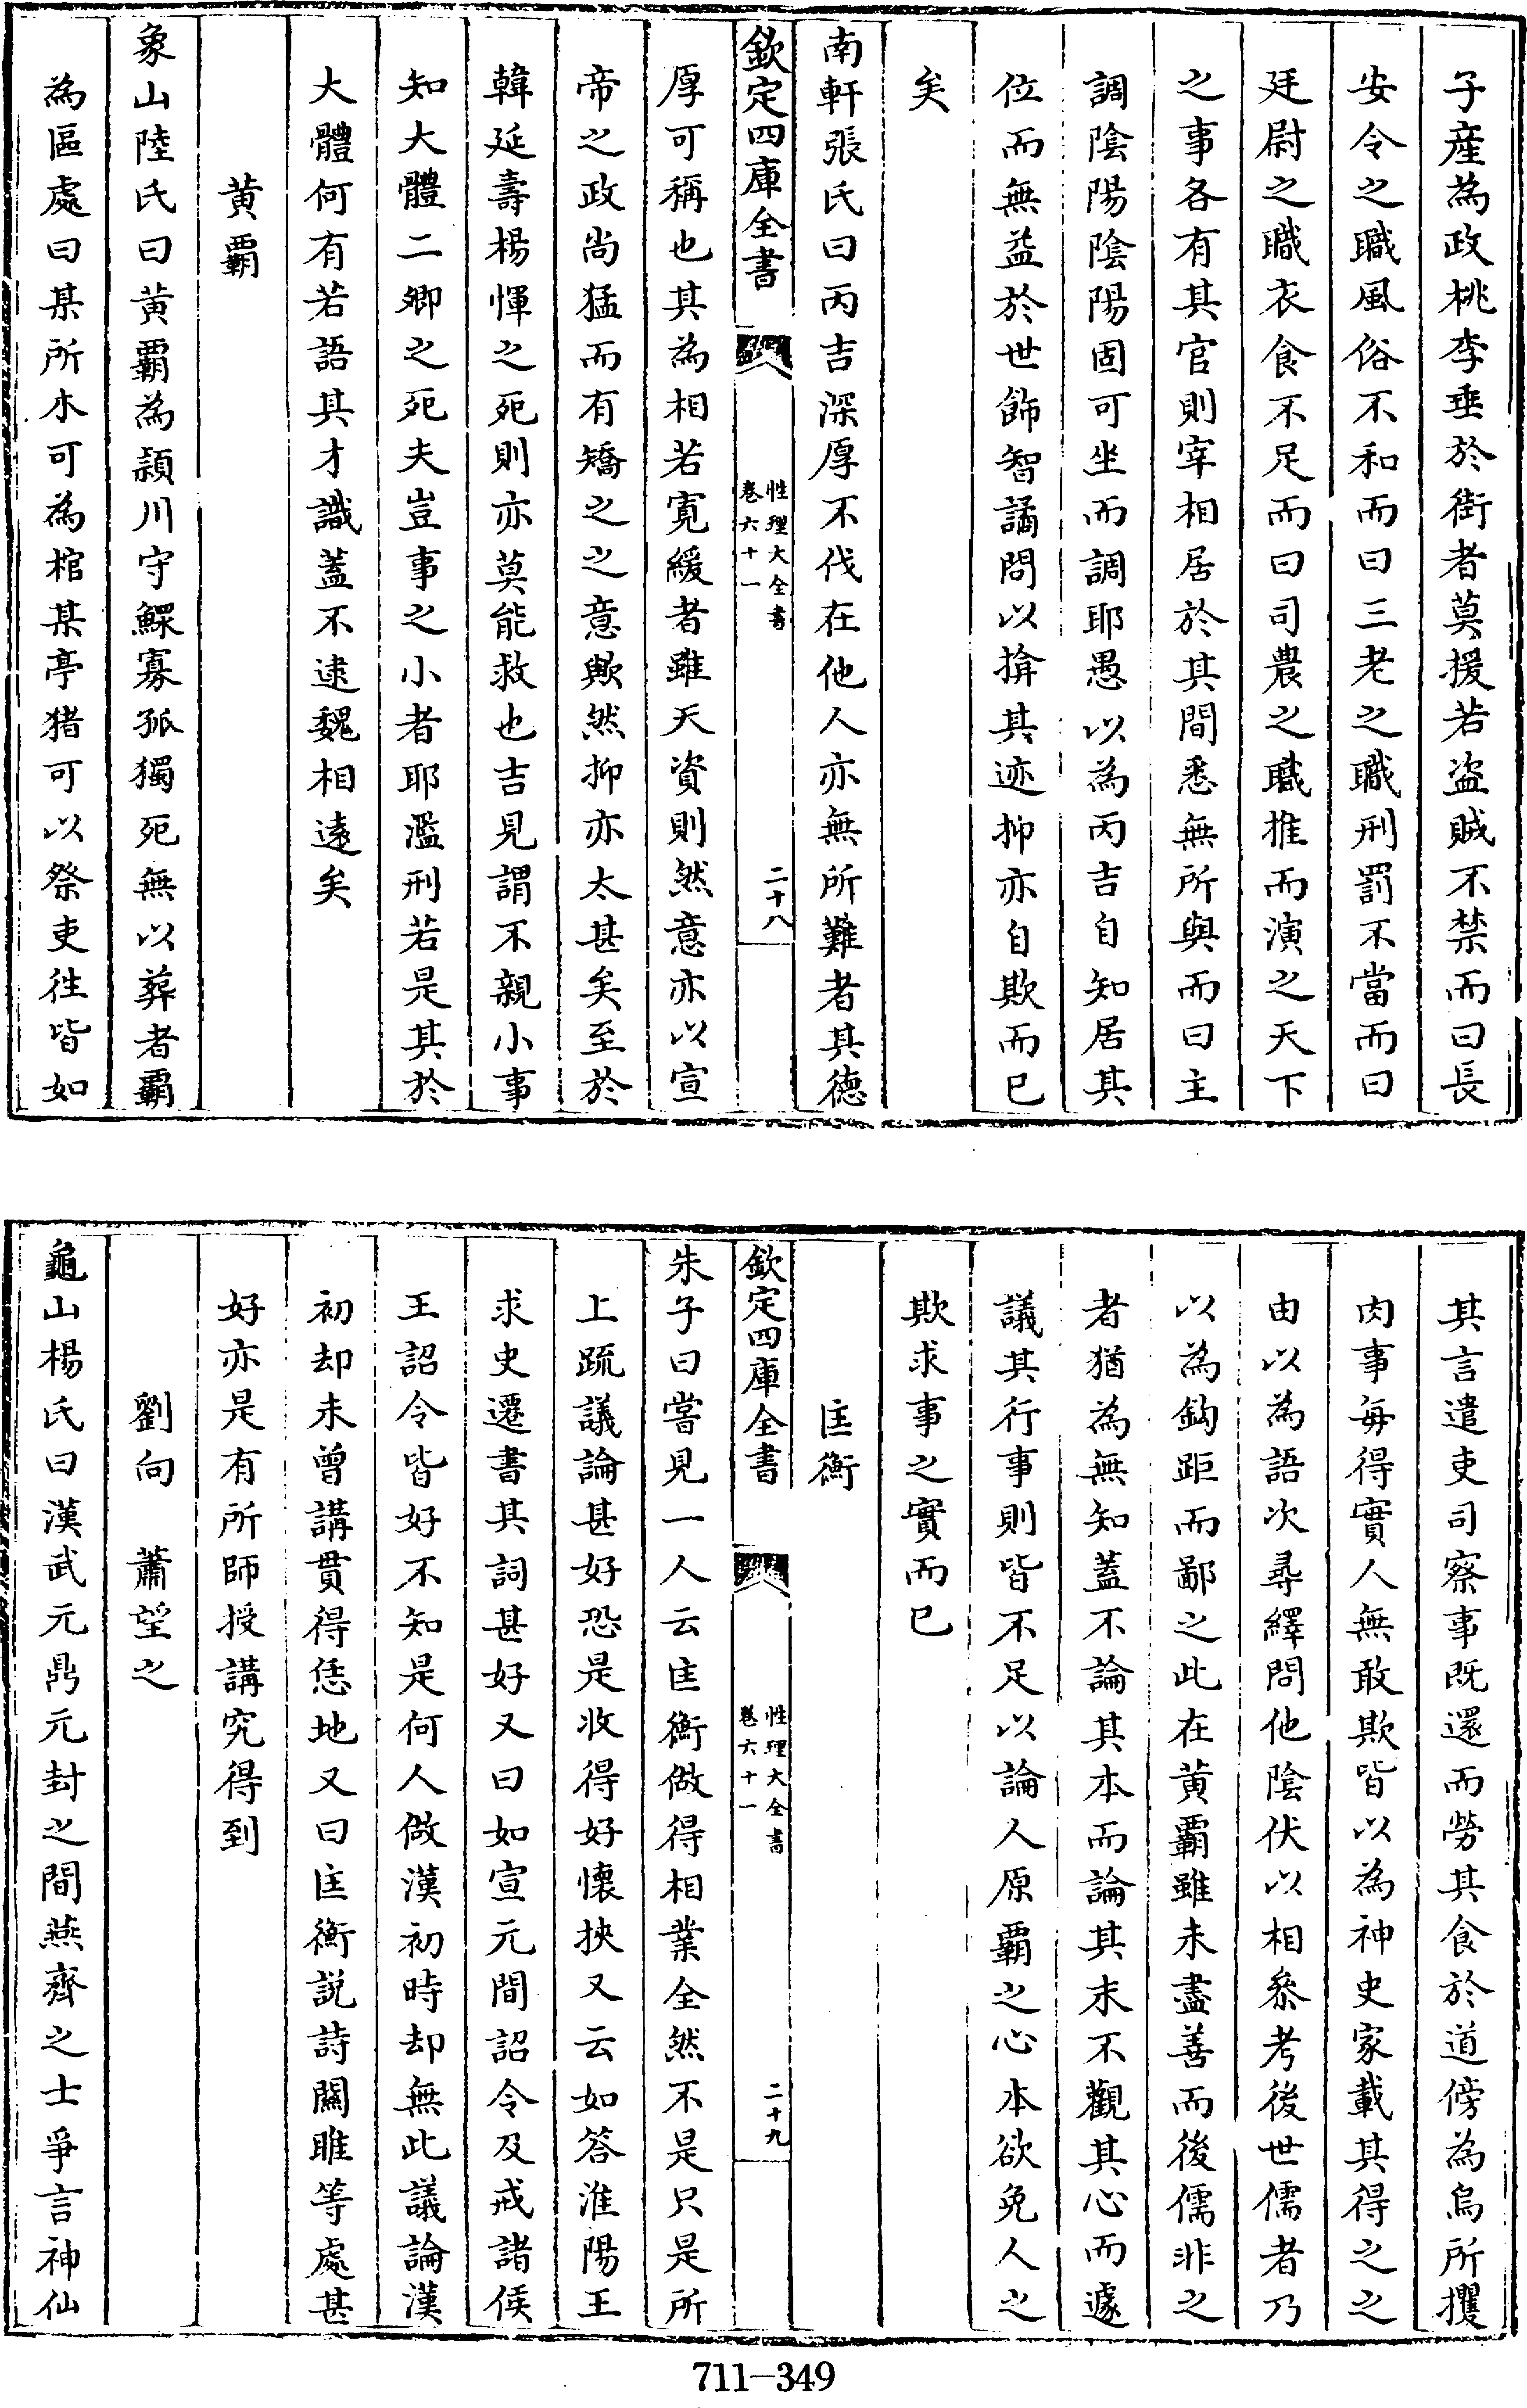 子產為政桃李垂於街者莫援若盗賊不禁而曰長
安令之職風俗不和而曰三老之職刑罰不當而曰
廷尉之職衣食不足而曰司農之職推而演之天下
之事各有其官則宰相居於其間悉無所與而曰主
調陰陽陰陽固可坐而調耶愚以為丙吉自知居其
位而無益於世飾智譎問以揜其迹抑亦自欺而已
矣
南軒張氏曰丙吉深厚不伐在他人亦無所難者其德
欽定四庫全書
性理大全書
卷六十一
二十八
厚可稱也其為相若寛緩者雖天資則然意亦以宣
帝之政尚猛而有矯之之意歟然抑亦太甚矣至於
韓延壽楊惲之死則亦莫能救也吉見謂不親小事
知大體二卿之死夫豈事之小者耶濫刑若是其於
大體何有若語其才識蓋不逮魏相遠矣
黄霸
象山陸氏曰黄霸為潁川守鰥寡孤獨死無以葬者霸
為區處曰某所木可為棺某亭猪可以祭吏往皆如
其言遣吏司察事既還而勞其食於道傍為烏所攫
肉事每得實人無敢欺皆以為神史家載其得之之
由以為語次尋繹問他陰伏以相叅考後世儒者乃
以為鈎距而鄙之此在黄霸雖未盡善而後儒非之
者猶為無知蓋不論其本而論其末不觀其心而遽
議其行事則皆不足以論人原霸之心本欲免人之
欺求事之實而已
匡衡
欽定四庫全書
性理大全書
卷六十一
二十九
朱子曰嘗見一人云匡衡做得相業全然不是只是所
上疏議論甚好恐是收得好懐挾又云如答淮陽王
求史遷書其詞甚好又曰如宣元間詔令及戒諸侯
王詔令皆好不知是何人做漢初時却無此議論漢
初却未曾講貫得恁地又曰匡衡説詩關雎等處甚
好亦是有所師授講究得到
劉向　蕭望之
龜山楊氏曰漢武元鼎元封之間燕齊之士爭言神仙
711-349